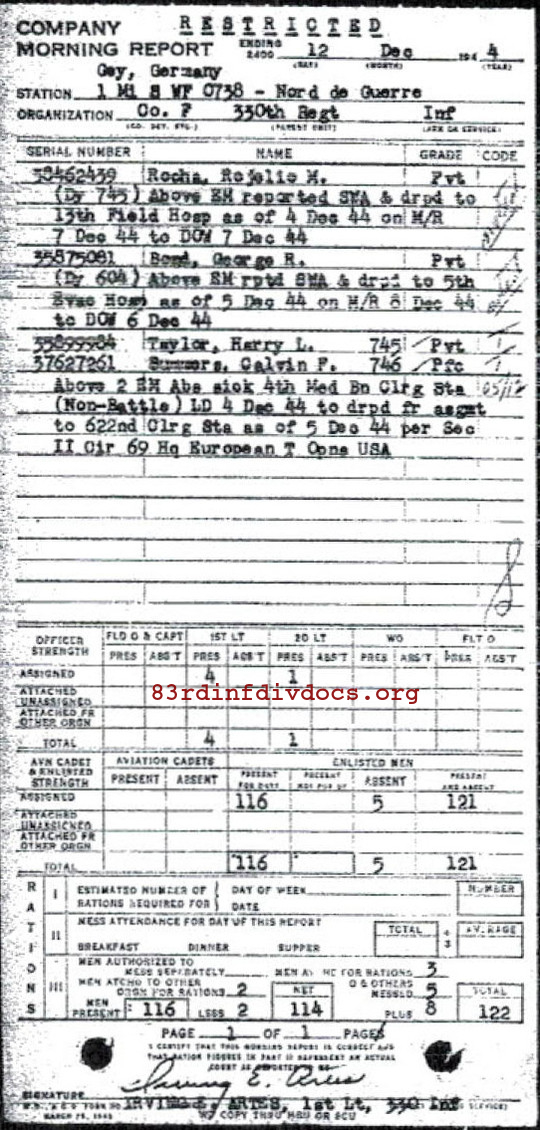 RESTRICTED
COMPANY
MORNING REPORT ENDING 2400 12 Dec 194 4
(DAY) (MONTH) (YEAR)
Gey, Germany
STATION 1 Mi S WF 0738 - Nord de Guerre
ORGANIZATION Co. F 330th Regt Inf
(CO. DET. ETC.) (PARENT UNIT) (ARM OR SERVICE)
SERIAL NUMBER NAME GRADE CODE
38462439 Rocha, Rojelio M. Pvt
(Dy 745) Above EM reported SWA & drpd to
13th Field Hosp as of 4 Dec 44 on M/R
7 Dec 44 to DOW 7 Dec 44
35875081 Bond, George R. Pvt
(Dy 604) Above EM rptd SWA & drpd to 5th
Evac Hosp as of 5 Dec 44 on M/R 8 Dec 44
to DOW 6 Dec 44
33899984 Taylor, Harry L. 745 Pvt
37627261 Summers, Calvin F. 746 Pfc
Above 2 EM Abs sick 4th Med Bn Clrg Sta
(Non-Battle) LD 4 Dec 44 to drpd fr asgmt
to 622nd Clrg Sta as of 5 Dec 44 per Sec
II Cir 69 Hq European T Opns USA
OFFICER STRENGTH FLD O & CAPT 1ST LT 2D LT WO FLT O
PRES ABS'T PRES ABS'T PRES ABS'T PRES ABS'T PRES ABS'T
ASSIGNED 4 1
ATTACHED UNASSIGNED
83rdinfdivdocs.org
ATTACHED FR OTHER ORGN
TOTAL 4 1
AVN CADET & ENLISTED STRENGTH AVIATION CADETS ENLISTED MEN
PRESENT ABSENT PRESENT FOR DUTY PRESENT NOT FOR DY ABSENT PRESENT AND ABSENT
ASSIGNED 116 5 121
ATTACHED UNASSIGNED
ATTACHED FR OTHER ORGN
TOTAL 116 5 121
RATIONS
I ESTIMATED NUMBER OF RATIONS REQUIRED FOR DAY OF WEEK DATE NUMBER
II MESS ATTENDANCE FOR DAY OF THIS REPORT TOTAL ÷ 3 AVERAGE
BREAKFAST DINNER SUPPER
III MEN AUTHORIZED TO MESS SEPARATELY MEN FOR RATIONS 3
MEN ATCHD TO OTHER ORGN FOR RATIONS 2 NET O & OTHERS MESSED 5 TOTAL
MEN PRESENT 116 LESS 2 114 PLUS 8 122
PAGE 1 OF 1 PAGES
I CERTIFY THAT THIS MORNING REPORT IS CORRECT AND
THAT RATION FIGURES IN PART II REPRESENT AN ACTUAL
Irving E. Artes
SIGNATURE
IRVING E. ARTES, 1st Lt, 330 Inf
MARCH 15, 1943